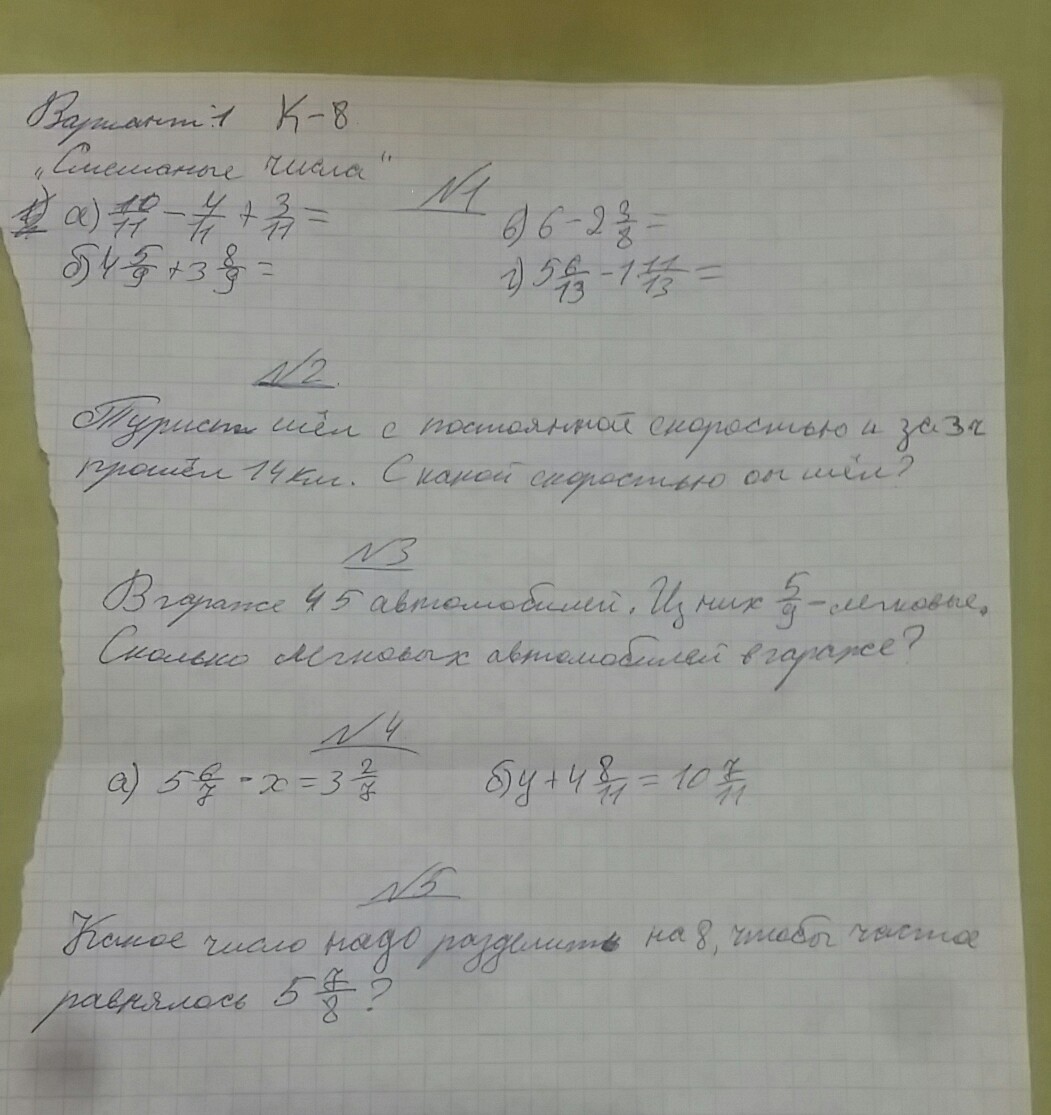 Вариант 1 К-8
"Смешаные числа"
№1
а) 10/11 - 4/11 + 3/11 =
в) 6 - 2 3/8 =
б) 4 5/9 + 3 8/9 =
г) 5 6/13 - 1 11/13 =
№2.
Турист шёл с постоянной скоростью и за 3ч
прошёл 14 км. С какой скоростью он шёл?
№3
В гараже 45 автомобилей. Из них 5/9 - легковые.
Сколько легковых автомобилей в гараже?
№4
а) 5 6/7 - x = 3 2/7 б) y + 4 8/11 = 10 7/11
№5
Какое число надо разделить на 8, чтобы частное
равнялось 5 7/8?